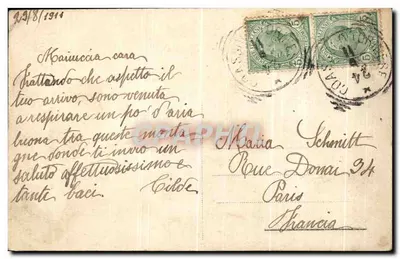 29/8/1911
Mariuccia cara
Frattando che aspetto il
tuo arrivo, sono venuta
a respirare un po' d'aria
buona tra queste monta
gne donde ti invio un
saluto affettuosissimo e
tante baci
Tilde
Maria Schmitt
Rue Donai 34
Paris
Francia